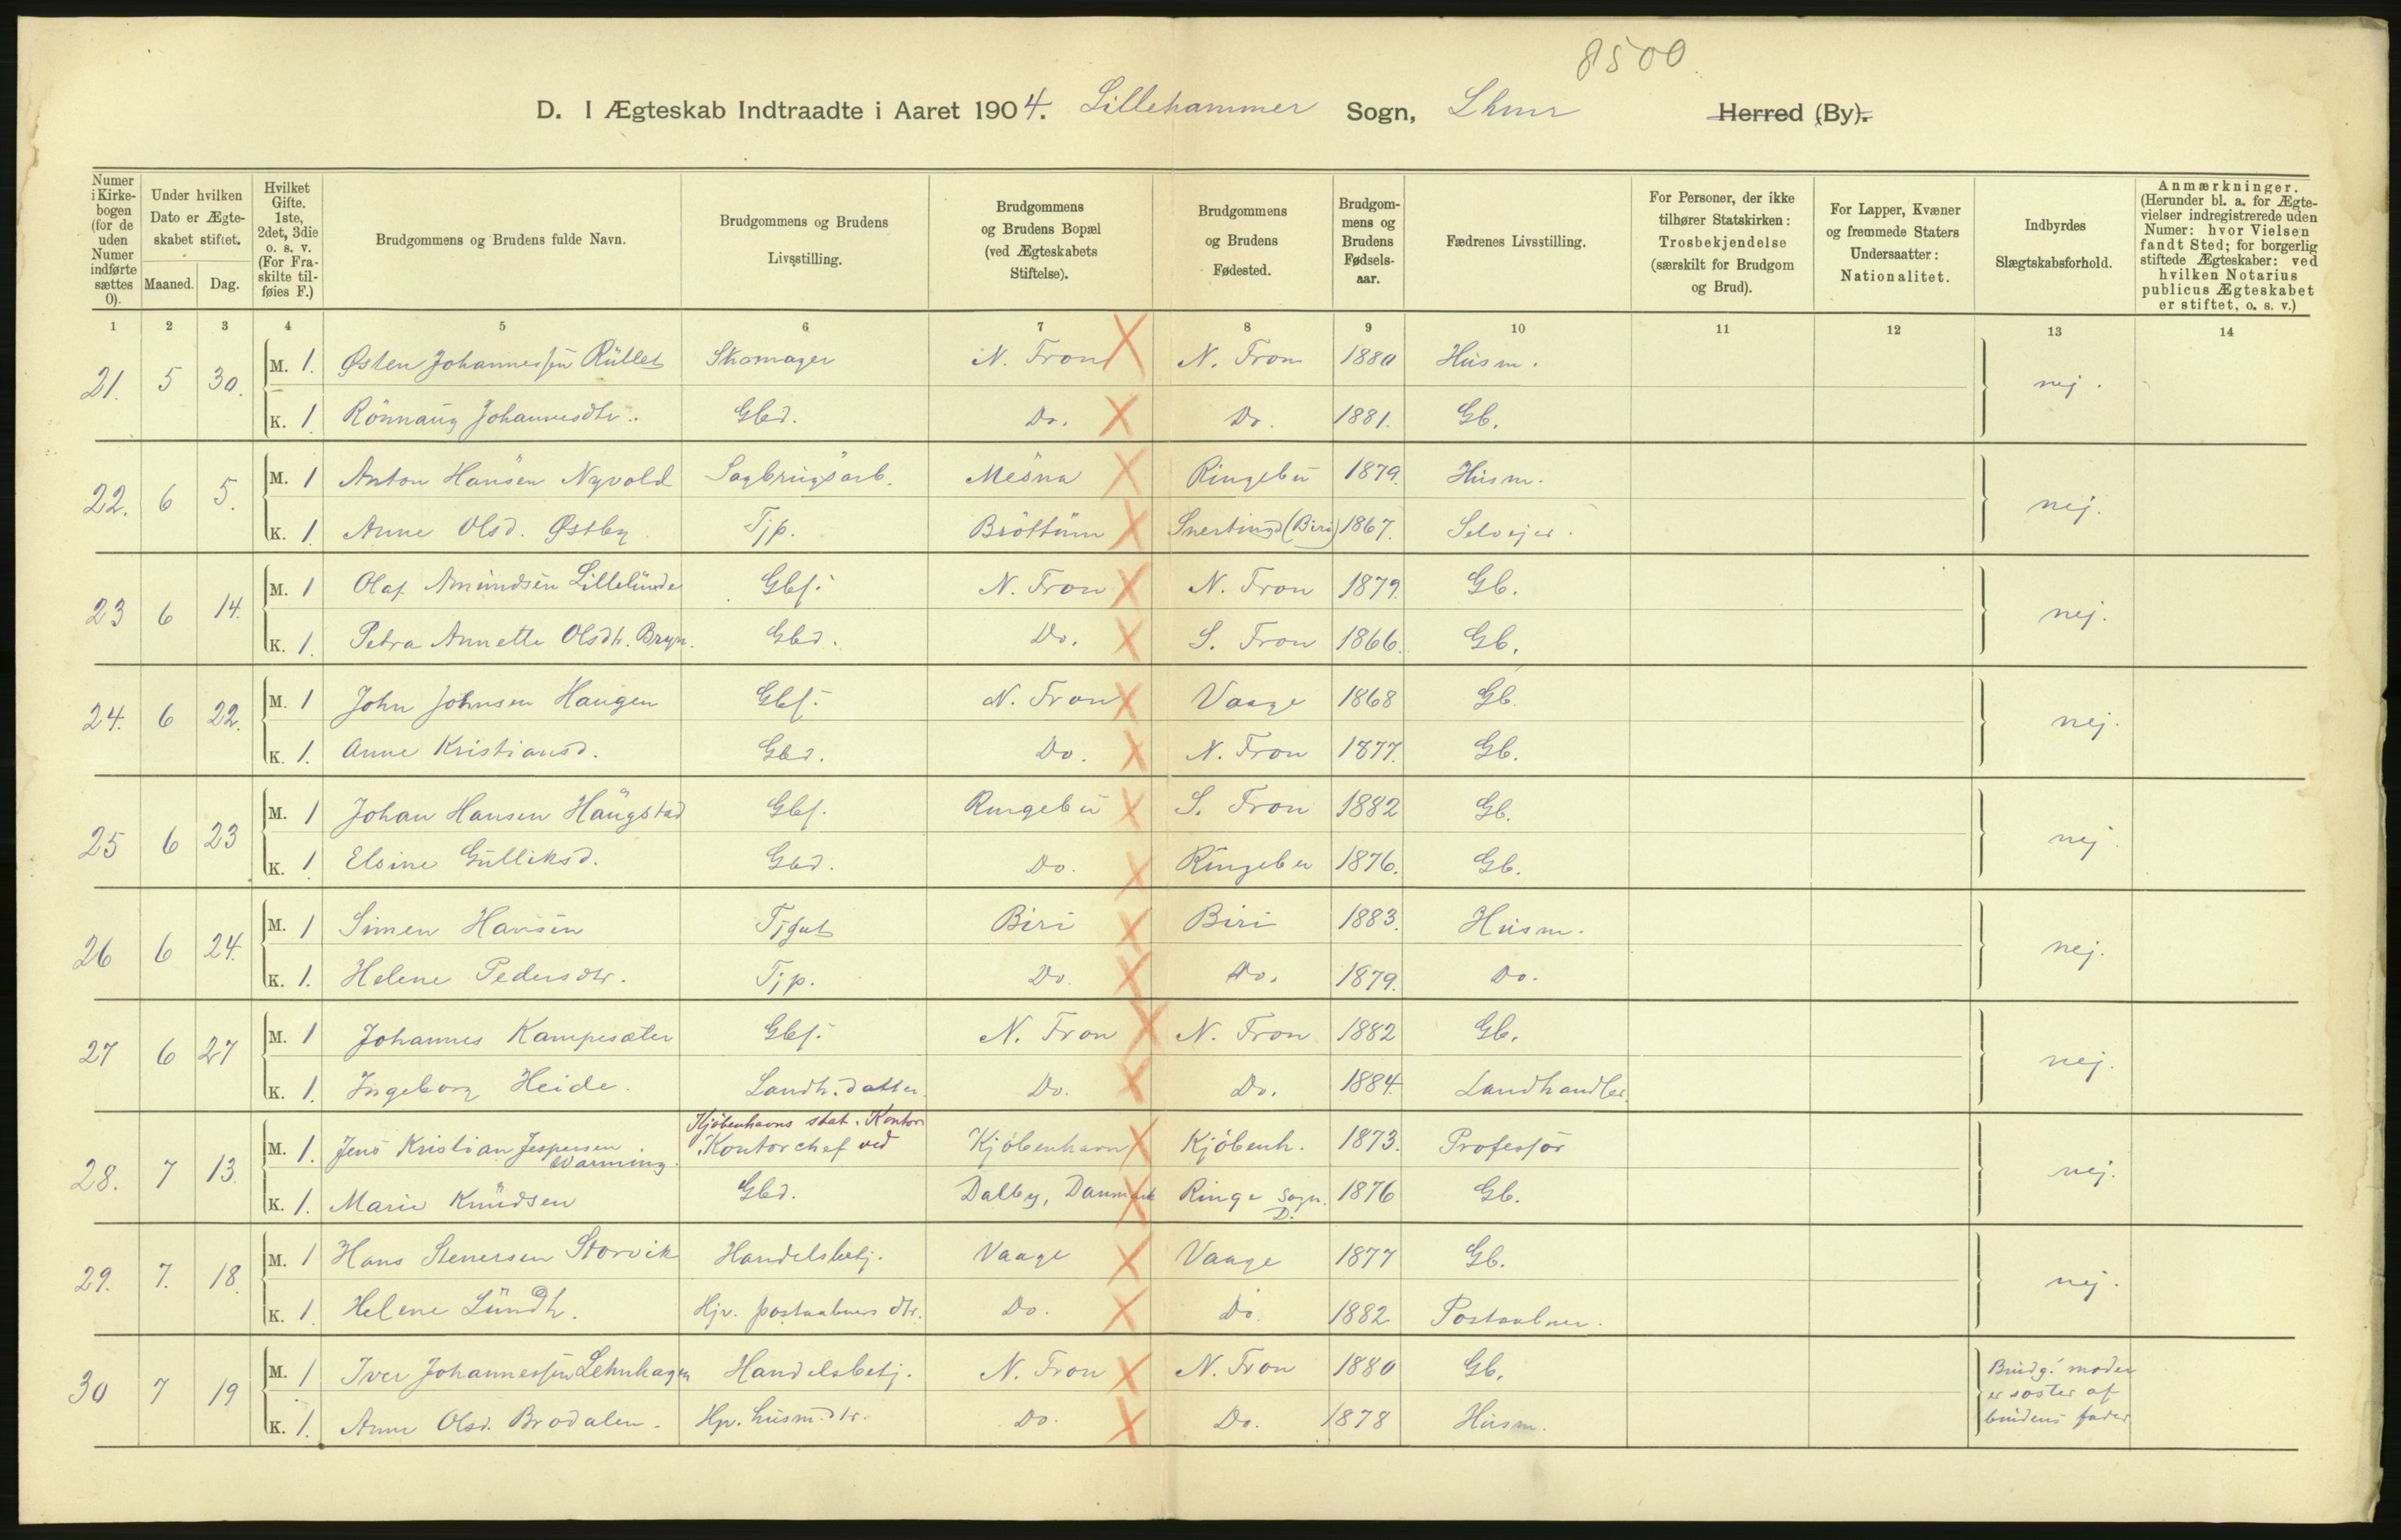 8500
D. I Ægteskab Indtraadte i Aaret 1904. Lillehammer Sogn, Lhmr Herred (By).
Numer i Kirkebogen (for de uden Numer indførte sættes 0).
Under hvilken Dato er Ægteskabet stiftet. Maaned. Dag.
Hvilket Gifte. 1ste, 2det, 3die o. s. v. (For Fraskilte tilføies F.)
Brudgommens og Brudens fulde Navn.
Brudgommens og Brudens Livsstilling.
Brudgommens og Brudens Bopæl (ved Ægteskabets Stiftelse).
Brudgommens og Brudens Fødested.
Brudgommens og Brudens Fødselsaar.
Fædrenes Livsstilling.
For Personer, der ikke tilhører Statskirken: Trosbekjendelse (særskilt for Brudgom og Brud).
For Lapper, Kvæner og fremmede Staters Undersaatter: Nationalitet.
Indbyrdes Slægtskabsforhold.
Anmærkninger. (Herunder bl. a. for Ægtevielser indregistrerede uden Numer: hvor Vielsen fandt Sted; for borgerlig stiftede Ægteskaber: ved hvilken Notarius publicus Ægteskabet er stiftet, o. s. v.)
1 2 3 4 5 6 7 8 9 10 11 12 13 14
21. 5 30. M. 1. Østen Johannessen Rüllet Skomager N. Fron N. Fron 1880 Husm. nej.
K. 1. Rönnaug Johannesdtr. Gbd. Do. Do. 1881. Gb.
22. 6 5. M. 1 Anton Hansen Nyvold Sagbrugsarb. Mesna Ringebu 1879. Husm. nej.
K. 1. Anne Olsd. Østby Tjp. Bröttum Snertingd (Biri) 1867. Selvejer.
23 6 14. M. 1 Olaf Amundsen Lillelunde Gbf. N. Fron N. Fron 1879. Gb. nej.
K. 1. Petra Annette Olsdtr. Bryn. Gbd. Do. S. Fron 1866. Gb.
24. 6 22. M. 1 John Johnsen Haugen Gbf. N. Fron Vaage 1868 Gb. nej.
K. 1. Anne Kristiansd. Gbd. Do. N. Fron 1877. Gb.
25 6 23 M. 1 Johan Hansen Haugstad Gbf. Ringebu S. Fron 1882 Gb. nej.
K. 1. Elsine Gulliksd. Gbd. Do. Ringebu 1876. Gb.
26 6 24. M. 1 Simen Hansen Tjgut Biri Biri 1883. Husm. nej.
K. 1. Helene Pedersdtr. Tjp. Do. Do. 1879. Do.
27 6 27 M. 1 Johannes Kampesæter Gbf. N. Fron N. Fron 1882 Gb. nej.
K. 1. Ingeborg Heide. Landh. datter. Do. Do. 1884. Landhandler.
Kjöbenhavns stat. Kontor
28. 7 13. M. 1. Jens Kristian Jespersen Warming. Kontorchef ved Kjöbenhavn Kjöbenh. 1873. Professor nej.
K. 1. Marie Knudsen Gbd. Dalby, Danmark Ringe Sogn. D. 1876 Gb.
29. 7. 18. M. 1 Hans Stenersen Storvik Handelsbetj. Vaage Vaage 1877 Gb. nej.
K. 1. Helene Lundh. Hjv. postaabners dtr. Do. Do. 1882 Postaabner.
30 7 19 M. 1 Iver Johannessen Lehnhagen Handelsbetj. N. Fron N. Fron 1880 Gb. Brudg. moder er søster af brudens fader
K. 1. Anne Olsd. Brodalen. Hjv. husm. dtr. Do. Do. 1878 Husm.